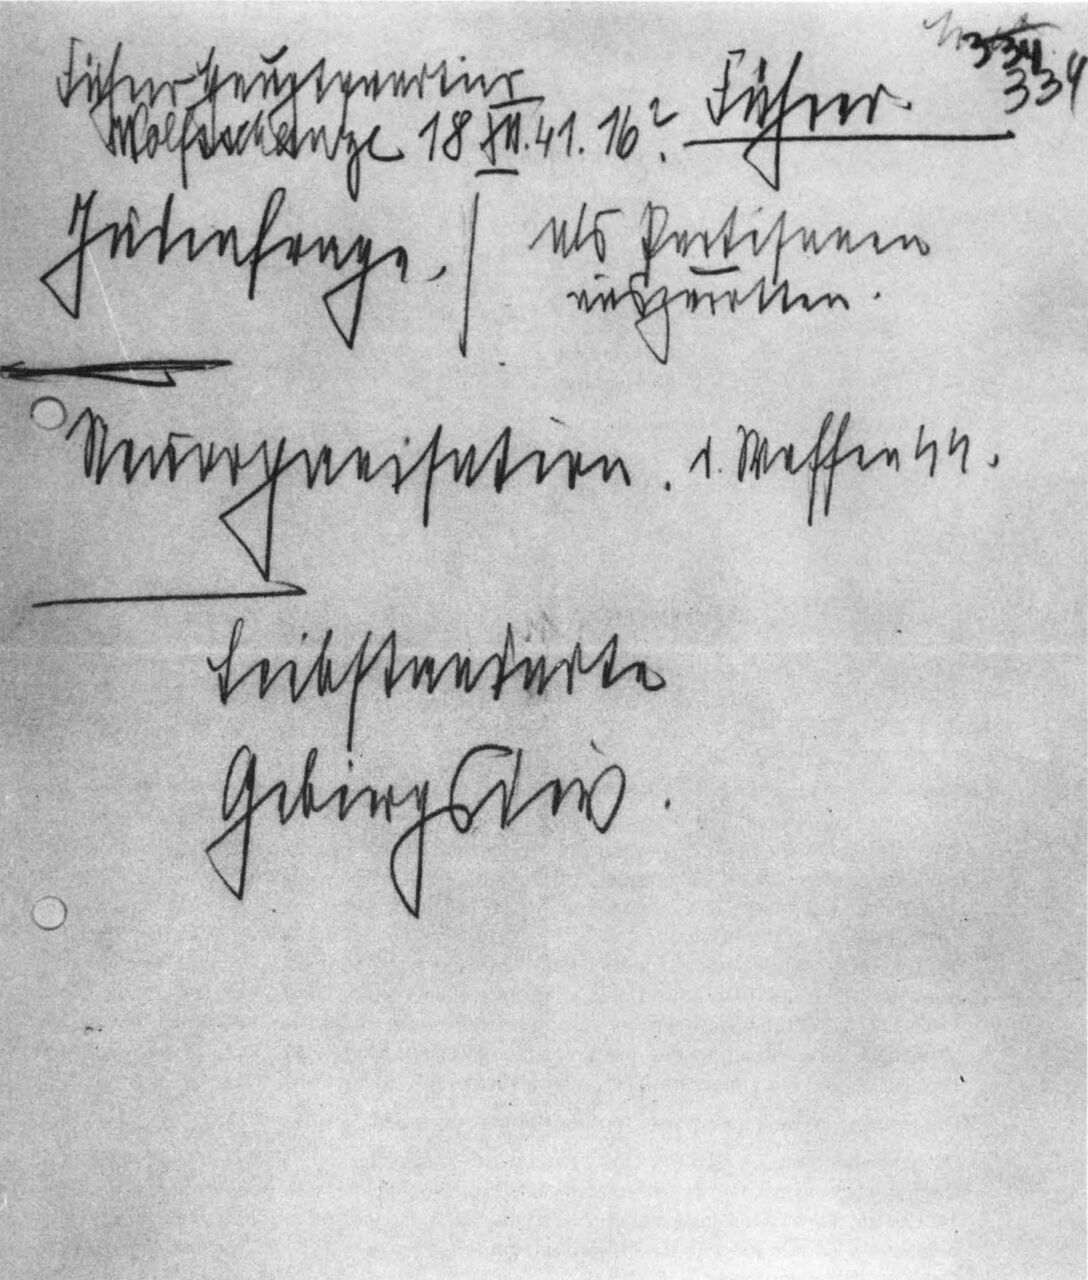 334
334
Führerhauptquartier
Wolfsschanze 18 XII. 41. 16? Führer.
Judenfrage. | als Partisanen
auszurotten.
Neuorganisation. d. Waffen SS.
Leibstandarte
Gebirgsdiv.